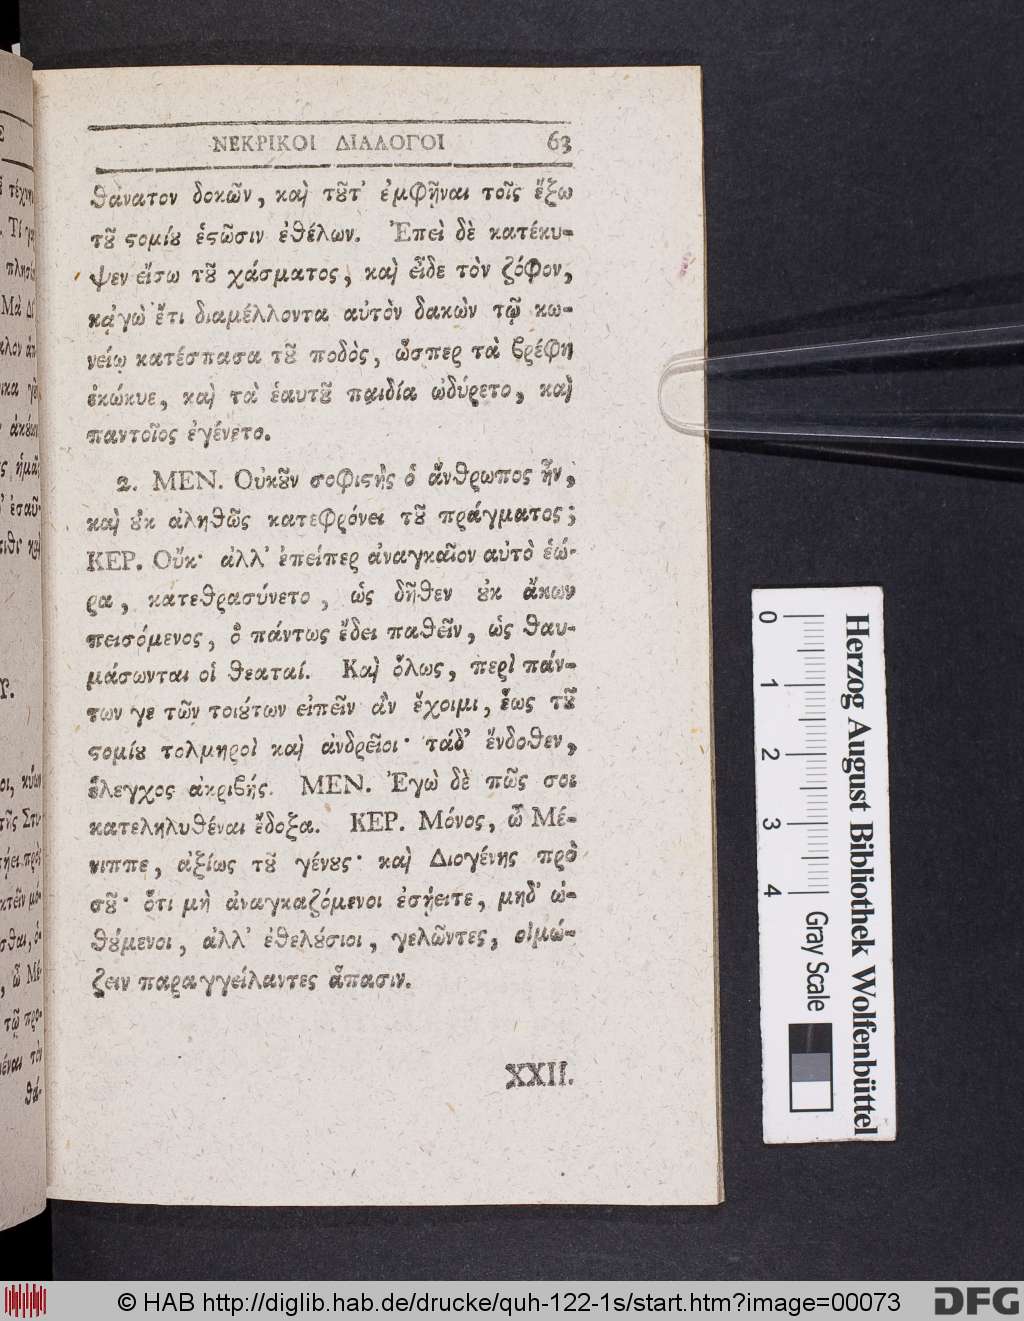 ΝΕΚΡΙΚΟΙ ΔΙΑΛΟΓΟΙ 63
θάνατον δοκῶν, καὶ τȣ͂τ' ἐμφῆναι τοῖς ἔξω
τȣ͂ ϛομίȣ ἑϛῶσιν ἐθέλων. Ἐπεὶ δὲ κατέκυ-
ψεν εἴσω τȣ͂ χάσματος, καὶ εἶδε τὸν ζόφον,
κᾀγὼ ἔτι διαμέλλοντα αὐτὸν δακὼν τῷ κω-
νείῳ κατέσπασα τȣ͂ ποδὸς, ὥσπερ τὰ βρέφη
ἐκώκυε, καὶ τὰ ἑαυτȣ͂ παιδία ὠδύρετο, καὶ
παντοῖος ἐγένετο.
2. ΜΕΝ. Οὐκȣ͂ν σοφιϛὴς ὁ ἄνθρωπος ἦν,
καὶ ȣ̓κ ἀληθῶς κατεφρόνει τȣ͂ πράγματος;
ΚΕΡ. Οὔκ· ἀλλ' ἐπείπερ ἀναγκαῖον αὐτὸ ἑώ-
ρα, κατεθρασύνετο, ὡς δῆθεν ȣ̓κ ἄκων
πεισόμενος, ὃ πάντως ἔδει παθεῖν, ὡς θαυ-
μάσωνται οἱ θεαταί. Καὶ ὅλως, περὶ πάν-
των γε τῶν τοιȣ́των εἰπεῖν ἂν ἔχοιμι, ἕως τȣ͂
ϛομίȣ τολμηροὶ καὶ ἀνδρεῖοι· τάδ' ἔνδοθεν,
ἔλεγχος ἀκριβής. ΜΕΝ. Ἐγὼ δὲ πῶς σοι
κατεληλυθέναι ἔδοξα. ΚΕΡ. Μόνος, ὦ Μέ-
νιππε, ἀξίως τȣ͂ γένȣς· καὶ Διογένης πρὸ
σȣ͂· ὅτι μὴ ἀναγκαζόμενοι ἐσῄειτε, μηδ' ὠ-
θȣ́μενοι, ἀλλ' ἐθελȣ́σιοι, γελῶντες, οἰμώ-
ζειν παραγγείλαντες ἅπασιν.
XXII.
0 1 2 3 4
Gray Scale
Herzog August Bibliothek Wolfenbüttel
© HAB http://diglib.hab.de/drucke/quh-122-1s/start.htm?image=00073
DFG